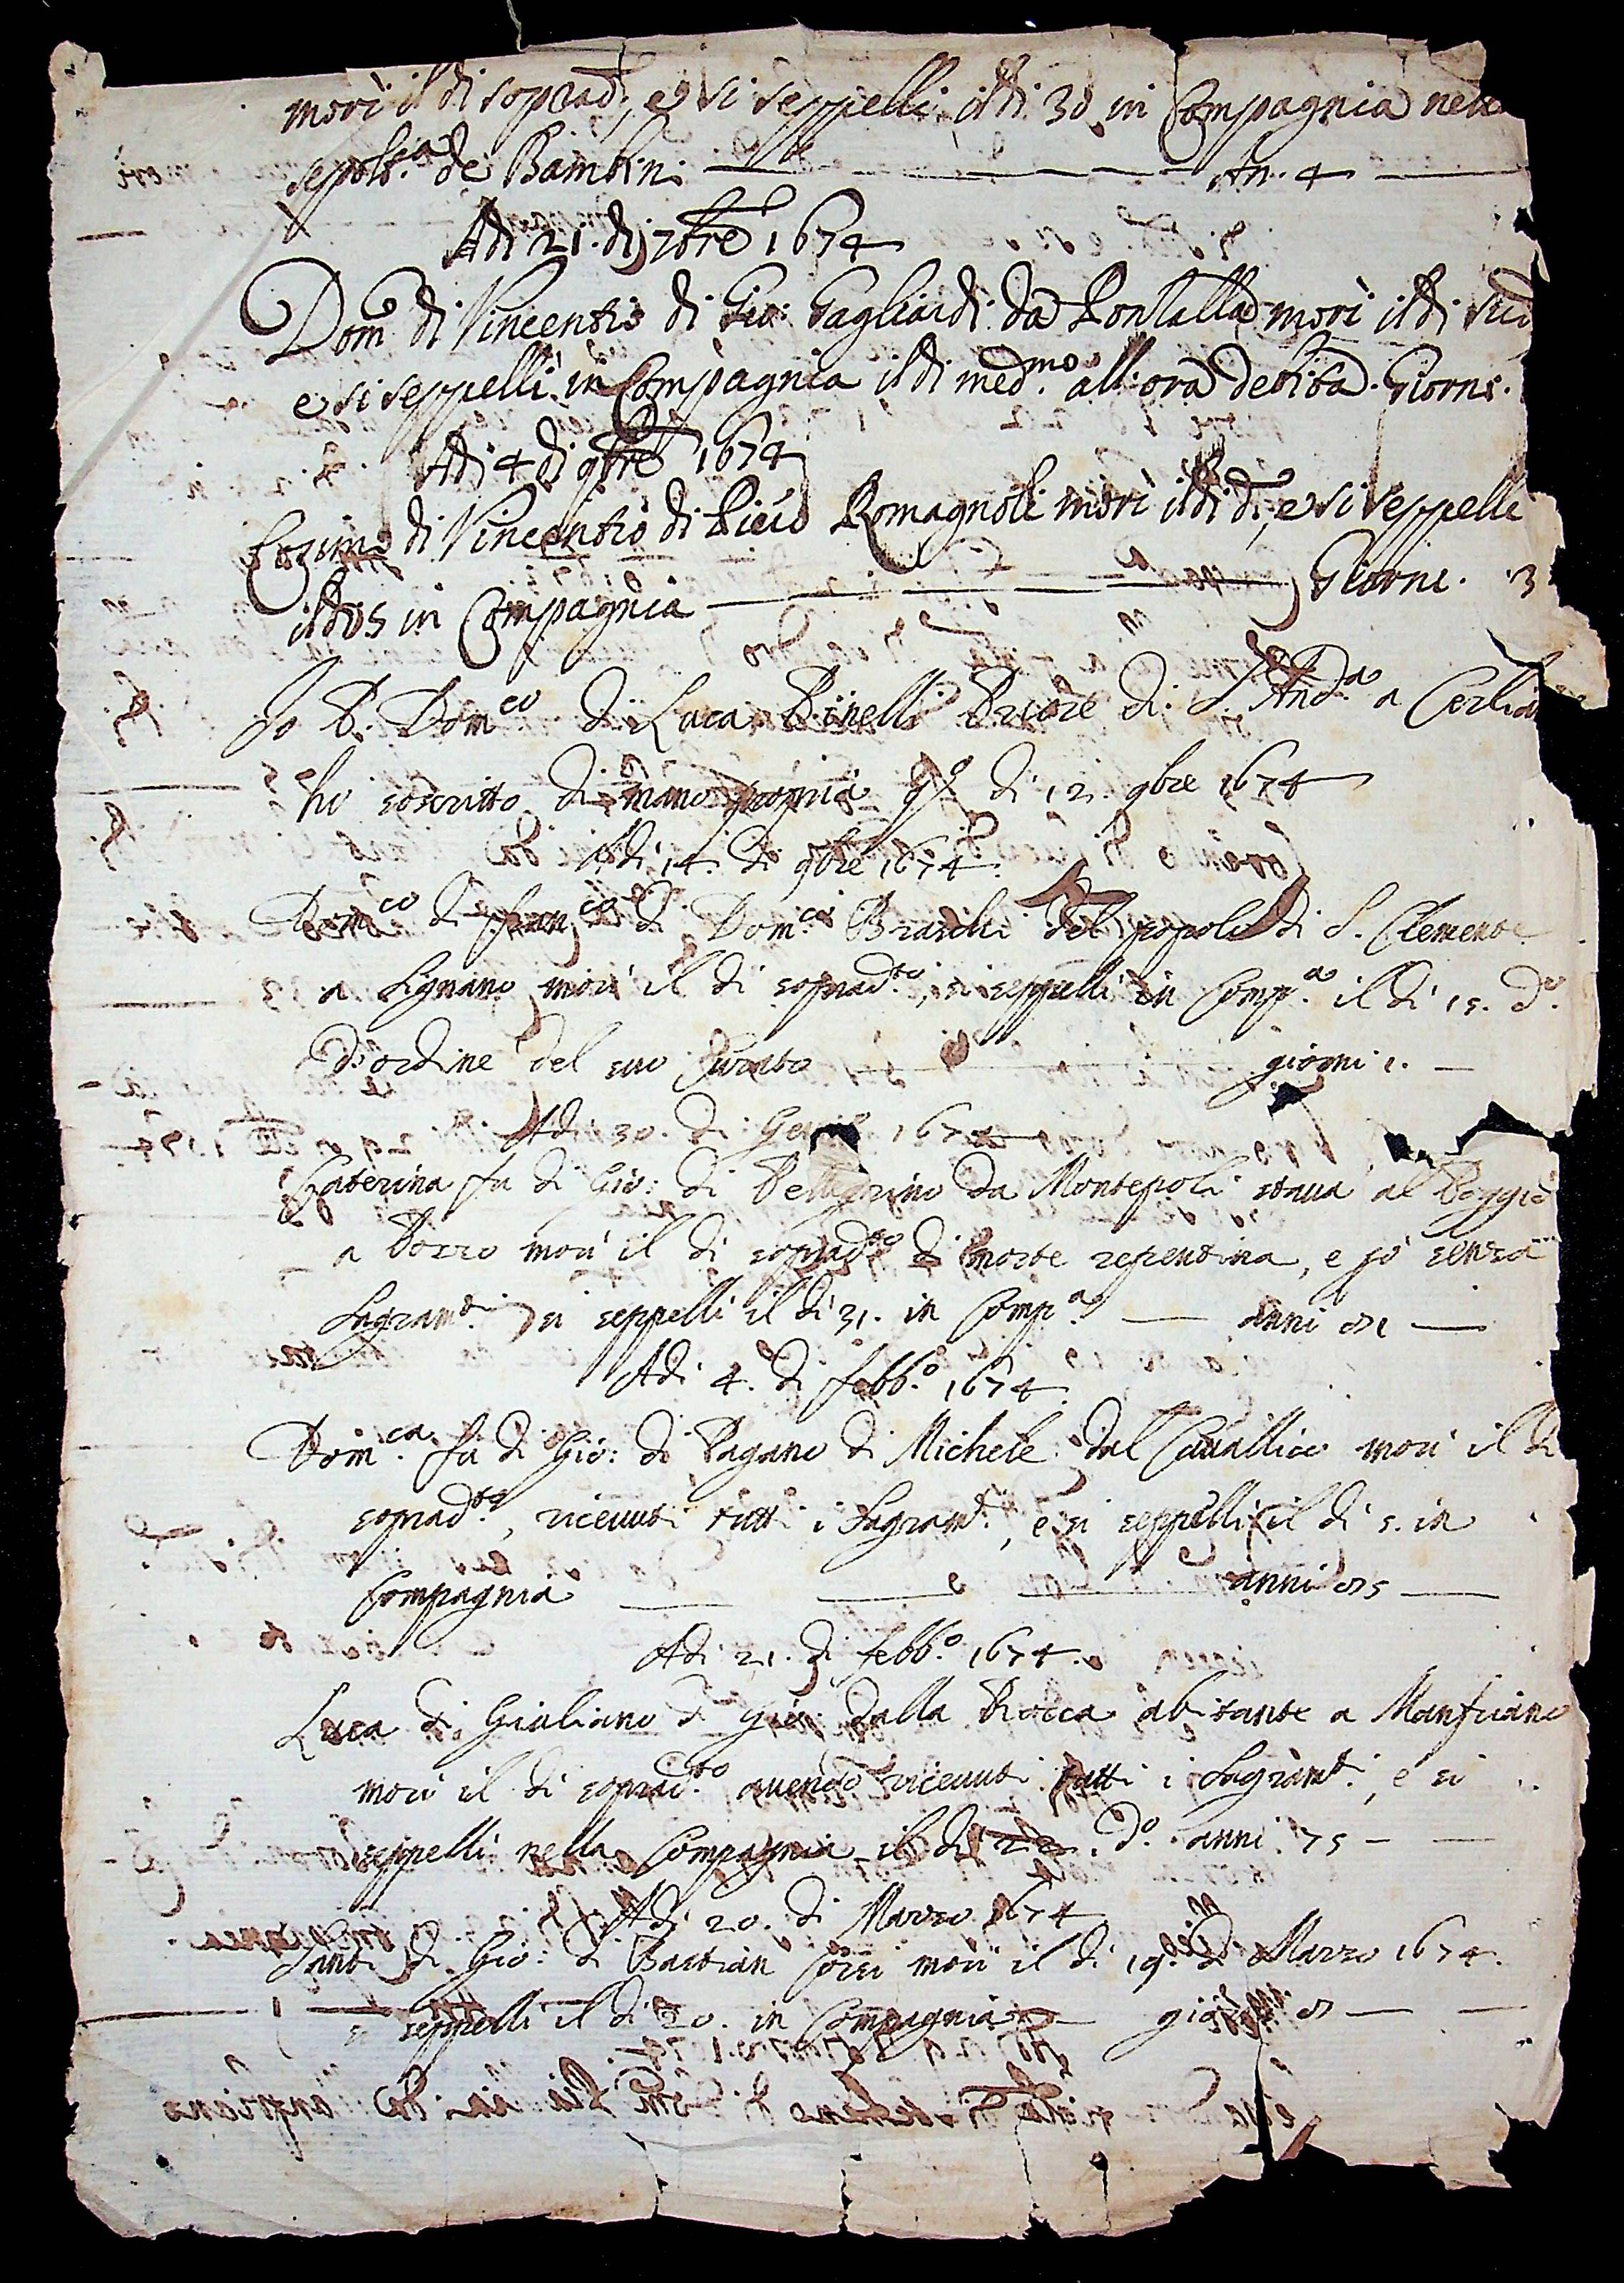 morì il dì soprad:, e si seppellì il dì 30 in Compagnia nella
sepolt.ra de Bambini An. 4
Adi 21. di 7bre 1674
Dom. di Vincentio di Gio: Gagliardi da morì il dì sud
e si seppellì in Compagnia il dì med.mo all'ora debita. Giorni.
Adi 4 di 9bre 1674
Cosimo di Vincentio di Piero Romagnoli morì il dì d:, e si seppellì
il dì 5 in Compagnia Giorni. 3
Io P. Dom.co di Luca Binelli Priore di S. And.a a
ho soscritto di mano propria q.o dì 12. 9bre 1674
Adi 14. di 9bre 1674.
Dom.co di Fran.co di Dom.co Braschi del popolo di S. Clemente
a Signano morì il dì soprad.to, si seppellì in Comp.a il dì 15. d.o
d'ordine del suo Curato giorni 1.
Adi 30. di 1674
Caterina fu di Gio: di Pellegrino da Montepoli staua al Poggio
a morì il dì soprad.to di morte repentina, e p.ò senza
Sagram.ti si seppellì il dì 31. in Comp.a anni
Adi 4. di febb.o 1674
Dom.ca fu di Gio: di Pagano di Michele dal morì il dì
soprad.to, riceuuti tutti i Sagram.ti, e si seppellì il dì 5. in
Compagnia anni
Adi 21. di febb.o 1674.
Luca di Giuliano di Gio: dalla Rocca abitante a Manfriano
morì il dì soprad.to auendo riceuuti tutti i Sagram.ti, e si
seppellì nella Compagnia il dì 22. d.o anni 75
Adi 20. di Marzo 1674
Santi di Gio: di Bastian Corsi morì il dì 19. di Marzo 1674.
si seppellì il dì 20. in Compagnia